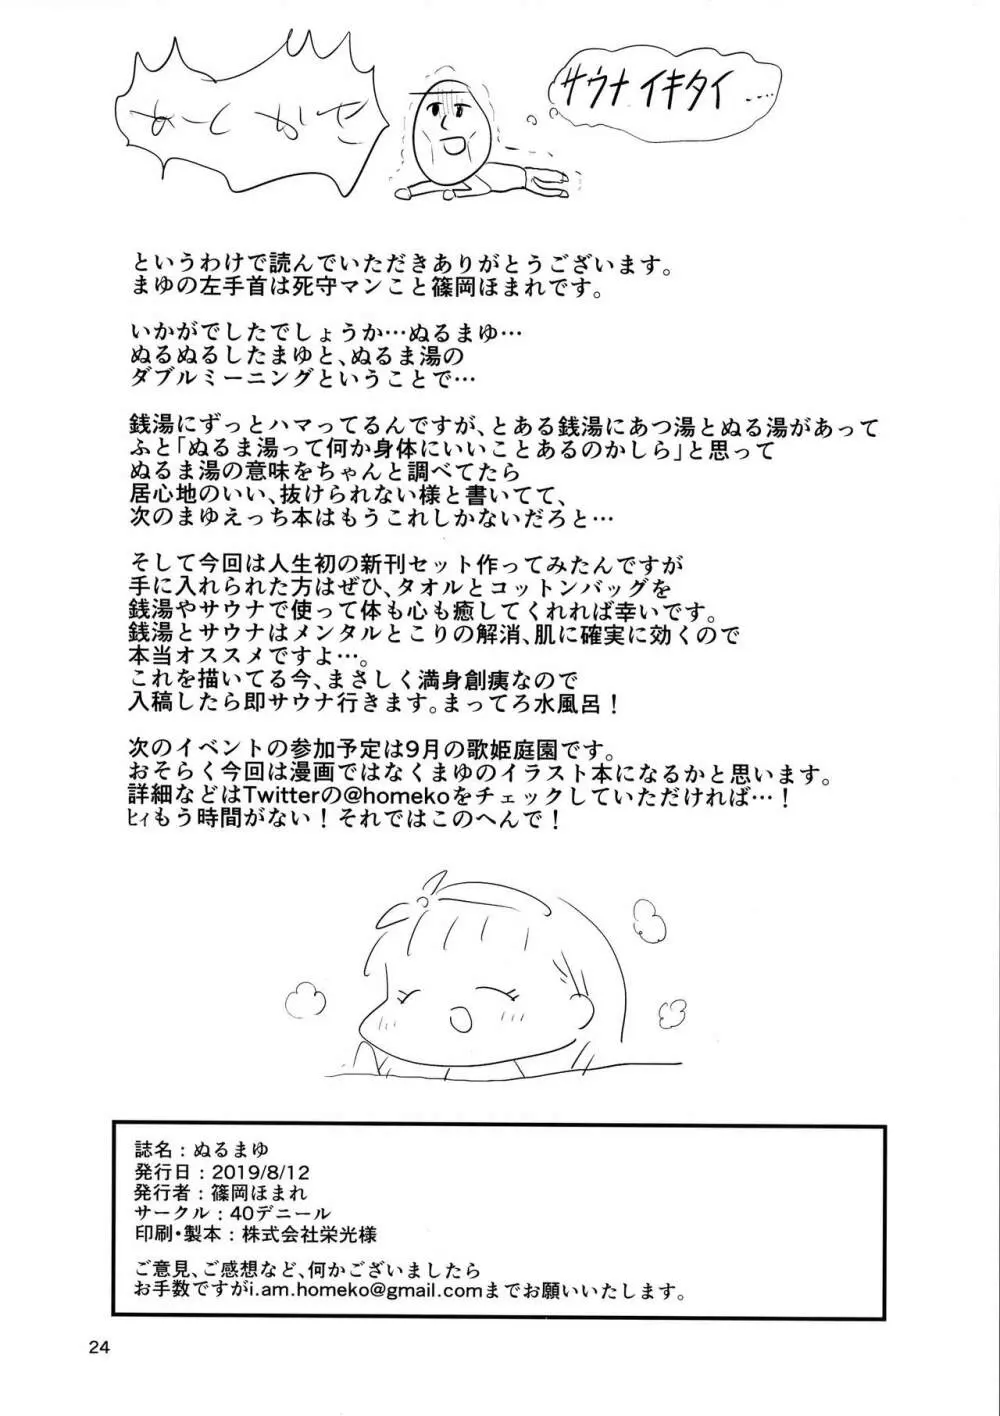 あとがき
サウナイキタイ…
というわけで読んでいただきありがとうございます。
まゆの左手首は死守マンこと篠岡ほまれです。
いかがでしたでしょうか…ぬるまゆ…
ぬるぬるしたまゆと、ぬるま湯の
ダブルミーニングということで…
銭湯にずっとハマってるんですが、とある銭湯にあつ湯とぬる湯があって
ふと「ぬるま湯って何か身体にいいことあるのかしら」と思って
ぬるま湯の意味をちゃんと調べてたら
居心地のいい、抜けられない様と書いてて、
次のまゆえっち本はもうこれしかないだろと…
そして今回は人生初の新刊セット作ってみたんですが
手に入れられた方はぜひ、タオルとコットンバッグを
銭湯やサウナで使って体も心も癒してくれれば幸いです。
銭湯とサウナはメンタルとこりの解消、肌に確実に効くので
本当オススメですよ…。
これを描いてる今、まさしく満身創痍なので
入稿したら即サウナ行きます。まってろ水風呂！
次のイベントの参加予定は9月の歌姫庭園です。
おそらく今回は漫画ではなくまゆのイラスト本になるかと思います。
詳細などはTwitterの@homekoをチェックしていただければ…！
ﾋｨもう時間がない！それではこのへんで！
誌名：ぬるまゆ
発行日：2019/8/12
発行者：篠岡ほまれ
サークル：40デニール
印刷・製本：株式会社栄光様
ご意見、ご感想など、何かございましたら
お手数ですがi.am.homeko@gmail.comまでお願いいたします。
24